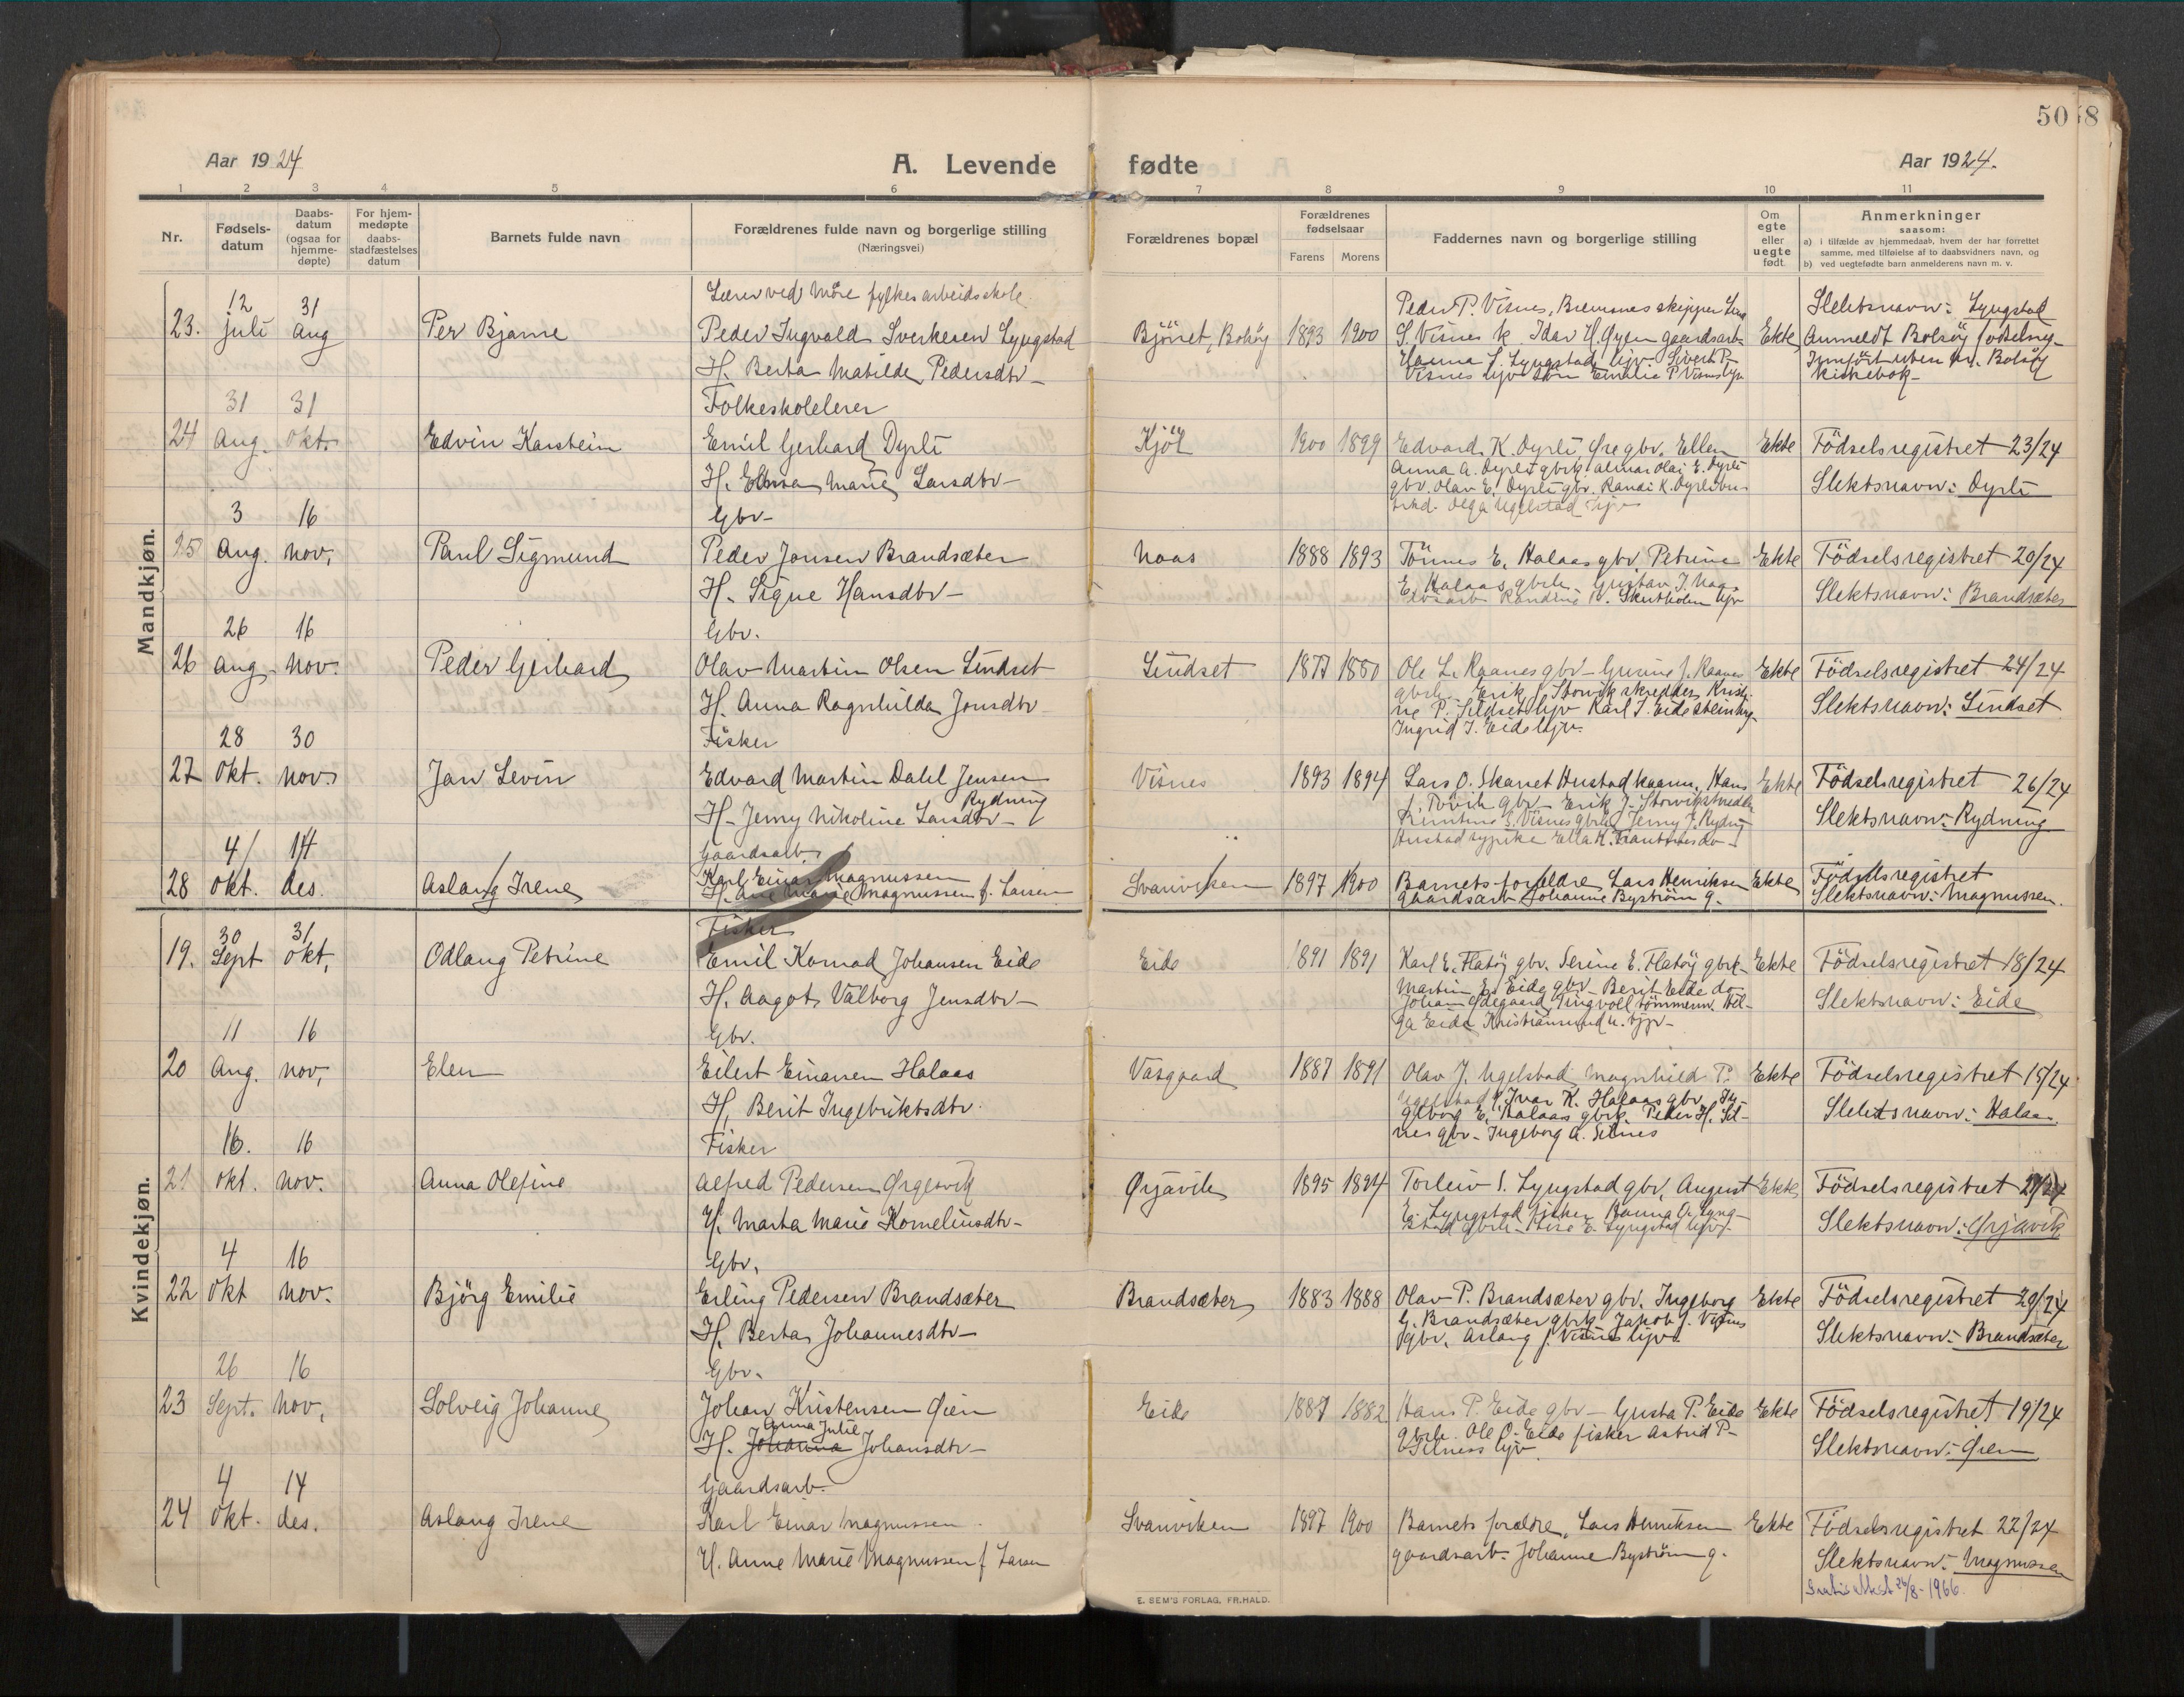 50
58
Aar 1924
A. Levende fødte
Aar 1924.
1 2 3 4 5 6 7 8 9 10 11
Nr.
Fødsels-
datum
Daabs-
datum
(ogsaa for
hjemme-
døpte)
For hjem-
medøpte
daabs-
stadfæstelses
datum
Barnets fulde navn
Forældrenes fulde navn og borgerlige stilling
(Næringsvei)
Forældrenes bopæl
Forældrenes
fødselsaar
Farens Morens
Faddernes navn og borgerlige stilling
Om
egte
eller
uegte
født.
Anmerkninger
saasom:
a) i tilfælde av hjemmedaab, hvem der har forrettet
samme, med tilføielse af to daabsvidners navn, og
b) ved uegtefødte barn anmelderens navn m. v.
Mandkjøn.
Lærer ved Møre fylkes arbeidsskole
23. 12 juli 31 aug Per Bjarne Peder Ingvald Sverkesen Lyngstad
H. Berta Matilde Pedersdtr
Bjørset, Bolsøy 1893 1900
Peder P. Visnes, Bremsnes skipper
S. Visnes k. Idar H. Øyen gaardsarb.
Hanna S. Lyngstad hjv. Sivert P.
Visnes hjv. Emilie P. Visnes hjv
Ekte
Slektsnavn: Lyngstad
Anmeldt Bolsøy fødselsreg.
Innført uten nr. Bolsøy
kirkebok
Folkeskolelerer
24 31 Aug. 31 okt. Edvin Karstein Emil Gerhard Dyrli
H. Elma Marie Larsdtr
Kjöl 1900 1899
Edvard K. Dyrli Øre gbr. Ellen
Anna A. Dyrli gbrk. Almar Olai E. Dyrli
gbr. Olav E. Dyrli gbr. Randi K. Dyrli
Olga Ugelstad hjv
Ekte
Födselsregistret 23/24
Slektsnavn: Dyrli
Gbr
25 3 Aug. 16 nov. Paul Sigmund Peder Jonsen Brandsæter
H. Signe Hansdtr
Naas 1888 1893
Tönnes E. Halaas gbr, Petrine
E. Halaas gbrk. Gustav J. Naas
Randine O. Skutholm hjv
Ekte
Födselsregistret 20/24
Slektsnavn: Brandsæter
Gbr.
26 26 aug. 16 nov. Peder Gerhard Olav Martin Olsen Lindset
H. Anna Ragnhilda Jonsdtr
Lindset 1877 1880
Ole L. Raanes gbr Gurine J. Raanes
gbrk. Erik J. Storvik skredder Kristi-
ne P. Sildset hjv Karl J. Eide
Ingrid J. Eide hjv.
Ekte
Födselsregistret 24/24
Slektsnavn: Lindset
Fisker
27 28 Okt. 30 nov. Jan Levin Edvard Martin Dahl Jensen
Rydning
H. Jenny Nikoline Larsdtr
Visnes 1893 1894
Lars O. Skarset Hustad kaarm. Hans
J. Tövik gbr. Erik J. Storvik skredder
Kirstine E. Visnes gbrk Jenny J. Rydning
Hustad sypike Ella K. Frantsdtr do
Ekte
Födselsregistret 26/24
Slektsnavn: Rydning
Gaardsarb.
28 4 okt. 14 des. Aslaug Irene Karl Einar Magnussen
H. Ane Marie Magnussen f. Larsen
Svanviken 1897 1900
Barnets foreldre, Lars Henriksen
gaardsarb Johanne Byström g.
Ekte
Födselsregistret
Slektsnavn: Magnussen.
Kvindekjøn.
Fisker
19. 30 Sept 31 okt. Odlaug Petrine Emil Konrad Johansen Eide
H. Aagot Valborg Jensdtr
Eide 1891 1891
Karl E. Flatöy gbr. Serine E. Flatöy gbrk
Martin E. Eide gbr Berit Eide do
Johan Ødegaard Tingvoll tömmerm. Hel-
ga Eide Kristiansund n. hjv
Ekte
Födselsregistret 18/24
Slektsnavn: Eide
Gbr.
20 11 Aug. 16 nov. Elen Eilert Einarsen Halaas
H. Berit Ingebriktsdtr.
Vasgaard 1887 1891
Olav J. Ugelstad Magnhild P.
Ugelstad Ivar K. Halaas gbr. In-
geborg E. Halaas gbrk. Peder H. Sil-
nes gbr. Ingeborg A. Silnes
Ekte
Födselsregistret 15/24
Slektsnavn: Halaas
Fisker
21 16. okt. 16 nov. Anna Olefine Alfred Pedersen Ørgervik
H. Marta Marie Korneliusdtr
Ørjavik 1895 1894
Torleiv S. Lyngstad gbr, August
E. Lyngstad fisker Hanna A. Lyng-
stad gbrk. E. Lyngstad hjv
Ekte
Födselsregistret
Slektsnavn: Ørjavik
Gbr.
22 4 Okt 16 nov. Björg Emilie Erling Pedersen Brandsæter
H. Berta Johannesdtr
Brandsæter 1883 1888
Olav P. Brandsæter gbr. Ingeborg
G. Brandsæter gbrk. Jakob J. Visnes
gbr. Aslaug J. Visnes hjv
Ekte
Födselsregistret 29/24
Slektsnavn: Brandsæter
Gbr.
23 26 Sept. 16 nov. Solveig Johanne Johan Kristensen Øien
Anna Julie
H. Johanna Johansdtr
Eide 1887 1882
Hans P. Eide gbr Gusta P. Eide
gbrk. Ole O. Eide fisker Astrid P.
Silness hjv
Ekte
Födselsregistret 19/24
Slektsnavn: Øien
Gaardsarb.
24 4 Okt. 14 des. Aslaug Irene Karl Einar Magnussen
H. Anne Marie Magnussen f Larsen
Svanviken 1897 1900
Barnets foreldre, Lars Henriksen
gaardsarb. Johanne Byström g.
Ekte
Födselsregistret 22/24
Slektsnavn: Magnussen
Gratis attest 26/8-1966
E. SEM'S FORLAG, FR.HALD.